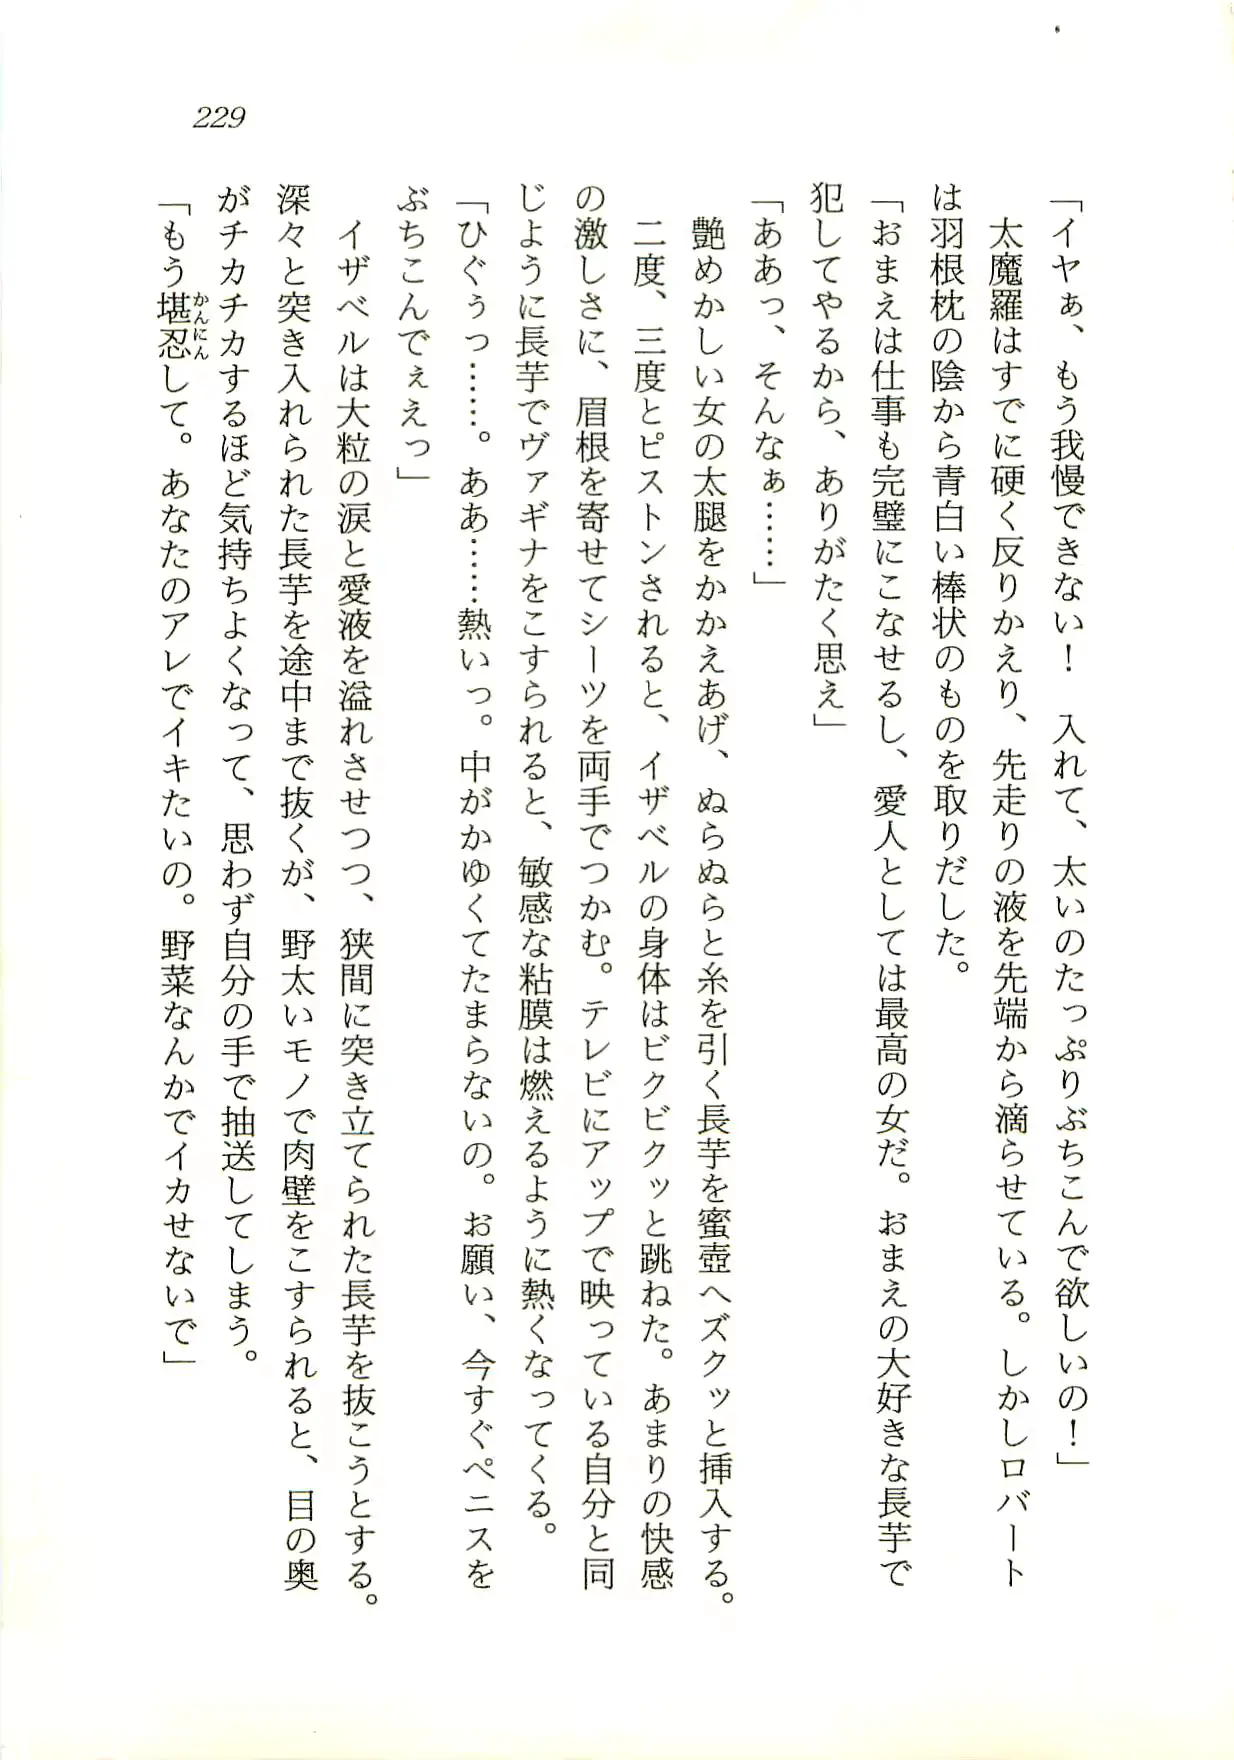 229
「イヤぁ、もう我慢できない！　入れて、太いのたっぷりぶちこんで欲しいの！」
　太魔羅はすでに硬く反りかえり、先走りの液を先端から滴らせている。しかしロバート
は羽根枕の陰から青白い棒状のものを取りだした。
「おまえは仕事も完璧にこなせるし、愛人としては最高の女だ。おまえの大好きな長芋で
犯してやるから、ありがたく思え」
「ああっ、そんなぁ……」
　艶めかしい女の太腿をかかえあげ、ぬらぬらと糸を引く長芋を蜜壺へズクッと挿入する。
　二度、三度とピストンされると、イザベルの身体はビクビクッと跳ねた。あまりの快感
の激しさに、眉根を寄せてシーツを両手でつかむ。テレビにアップで映っている自分と同
じように長芋でヴァギナをこすられると、敏感な粘膜は燃えるように熱くなってくる。
「ひぐぅっ……。ああ……熱いっ。中がかゆくてたまらないの。お願い、今すぐペニスを
ぶちこんでぇえっ」
　イザベルは大粒の涙と愛液を溢れさせつつ、狭間に突き立てられた長芋を抜こうとする。
深々と突き入れられた長芋を途中まで抜くが、野太いモノで肉壁をこすられると、目の奥
がチカチカするほど気持ちよくなって、思わず自分の手で抽送してしまう。
「もう堪忍かんにんして。あなたのアレでイキたいの。野菜なんかでイカせないで」